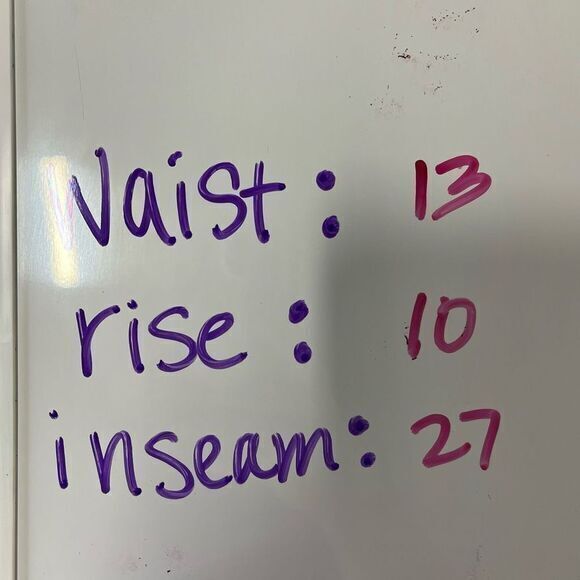 Waist: 13
rise: 10
inseam: 27